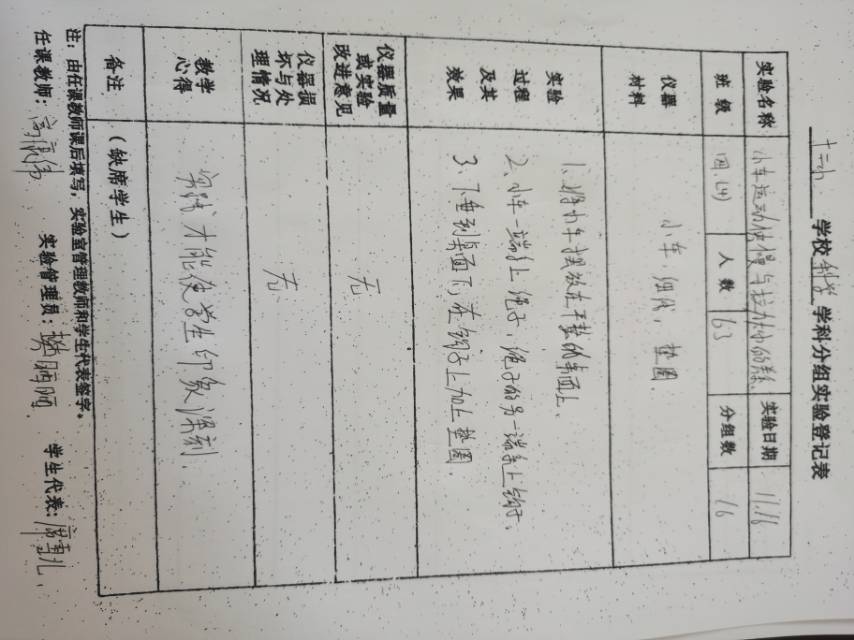 十二小 学校 科学 学科分组实验登记表
实验名称 小车运动快慢与拉力大小的关系 实验日期 11.16
班级 四.(4) 人数 63 分组数 16
仪器材料 小车、细线、垫圈.
实验过程及其效果
1、将小车摆放在平整的桌面上.
2、小车一端系上绳子,绳子的另一端系上钩子.
3、下垂到桌面下,在钩子上加上垫圈.
仪器质量或实验改进意见 无
仪器损坏与处理情况 无
教学心得 实践才能使学生印象深刻.
备注 (缺席学生)
注:由任课教师课后填写,实验室管理教师和学生代表签字。
任课教师: 实验管理员: 学生代表: